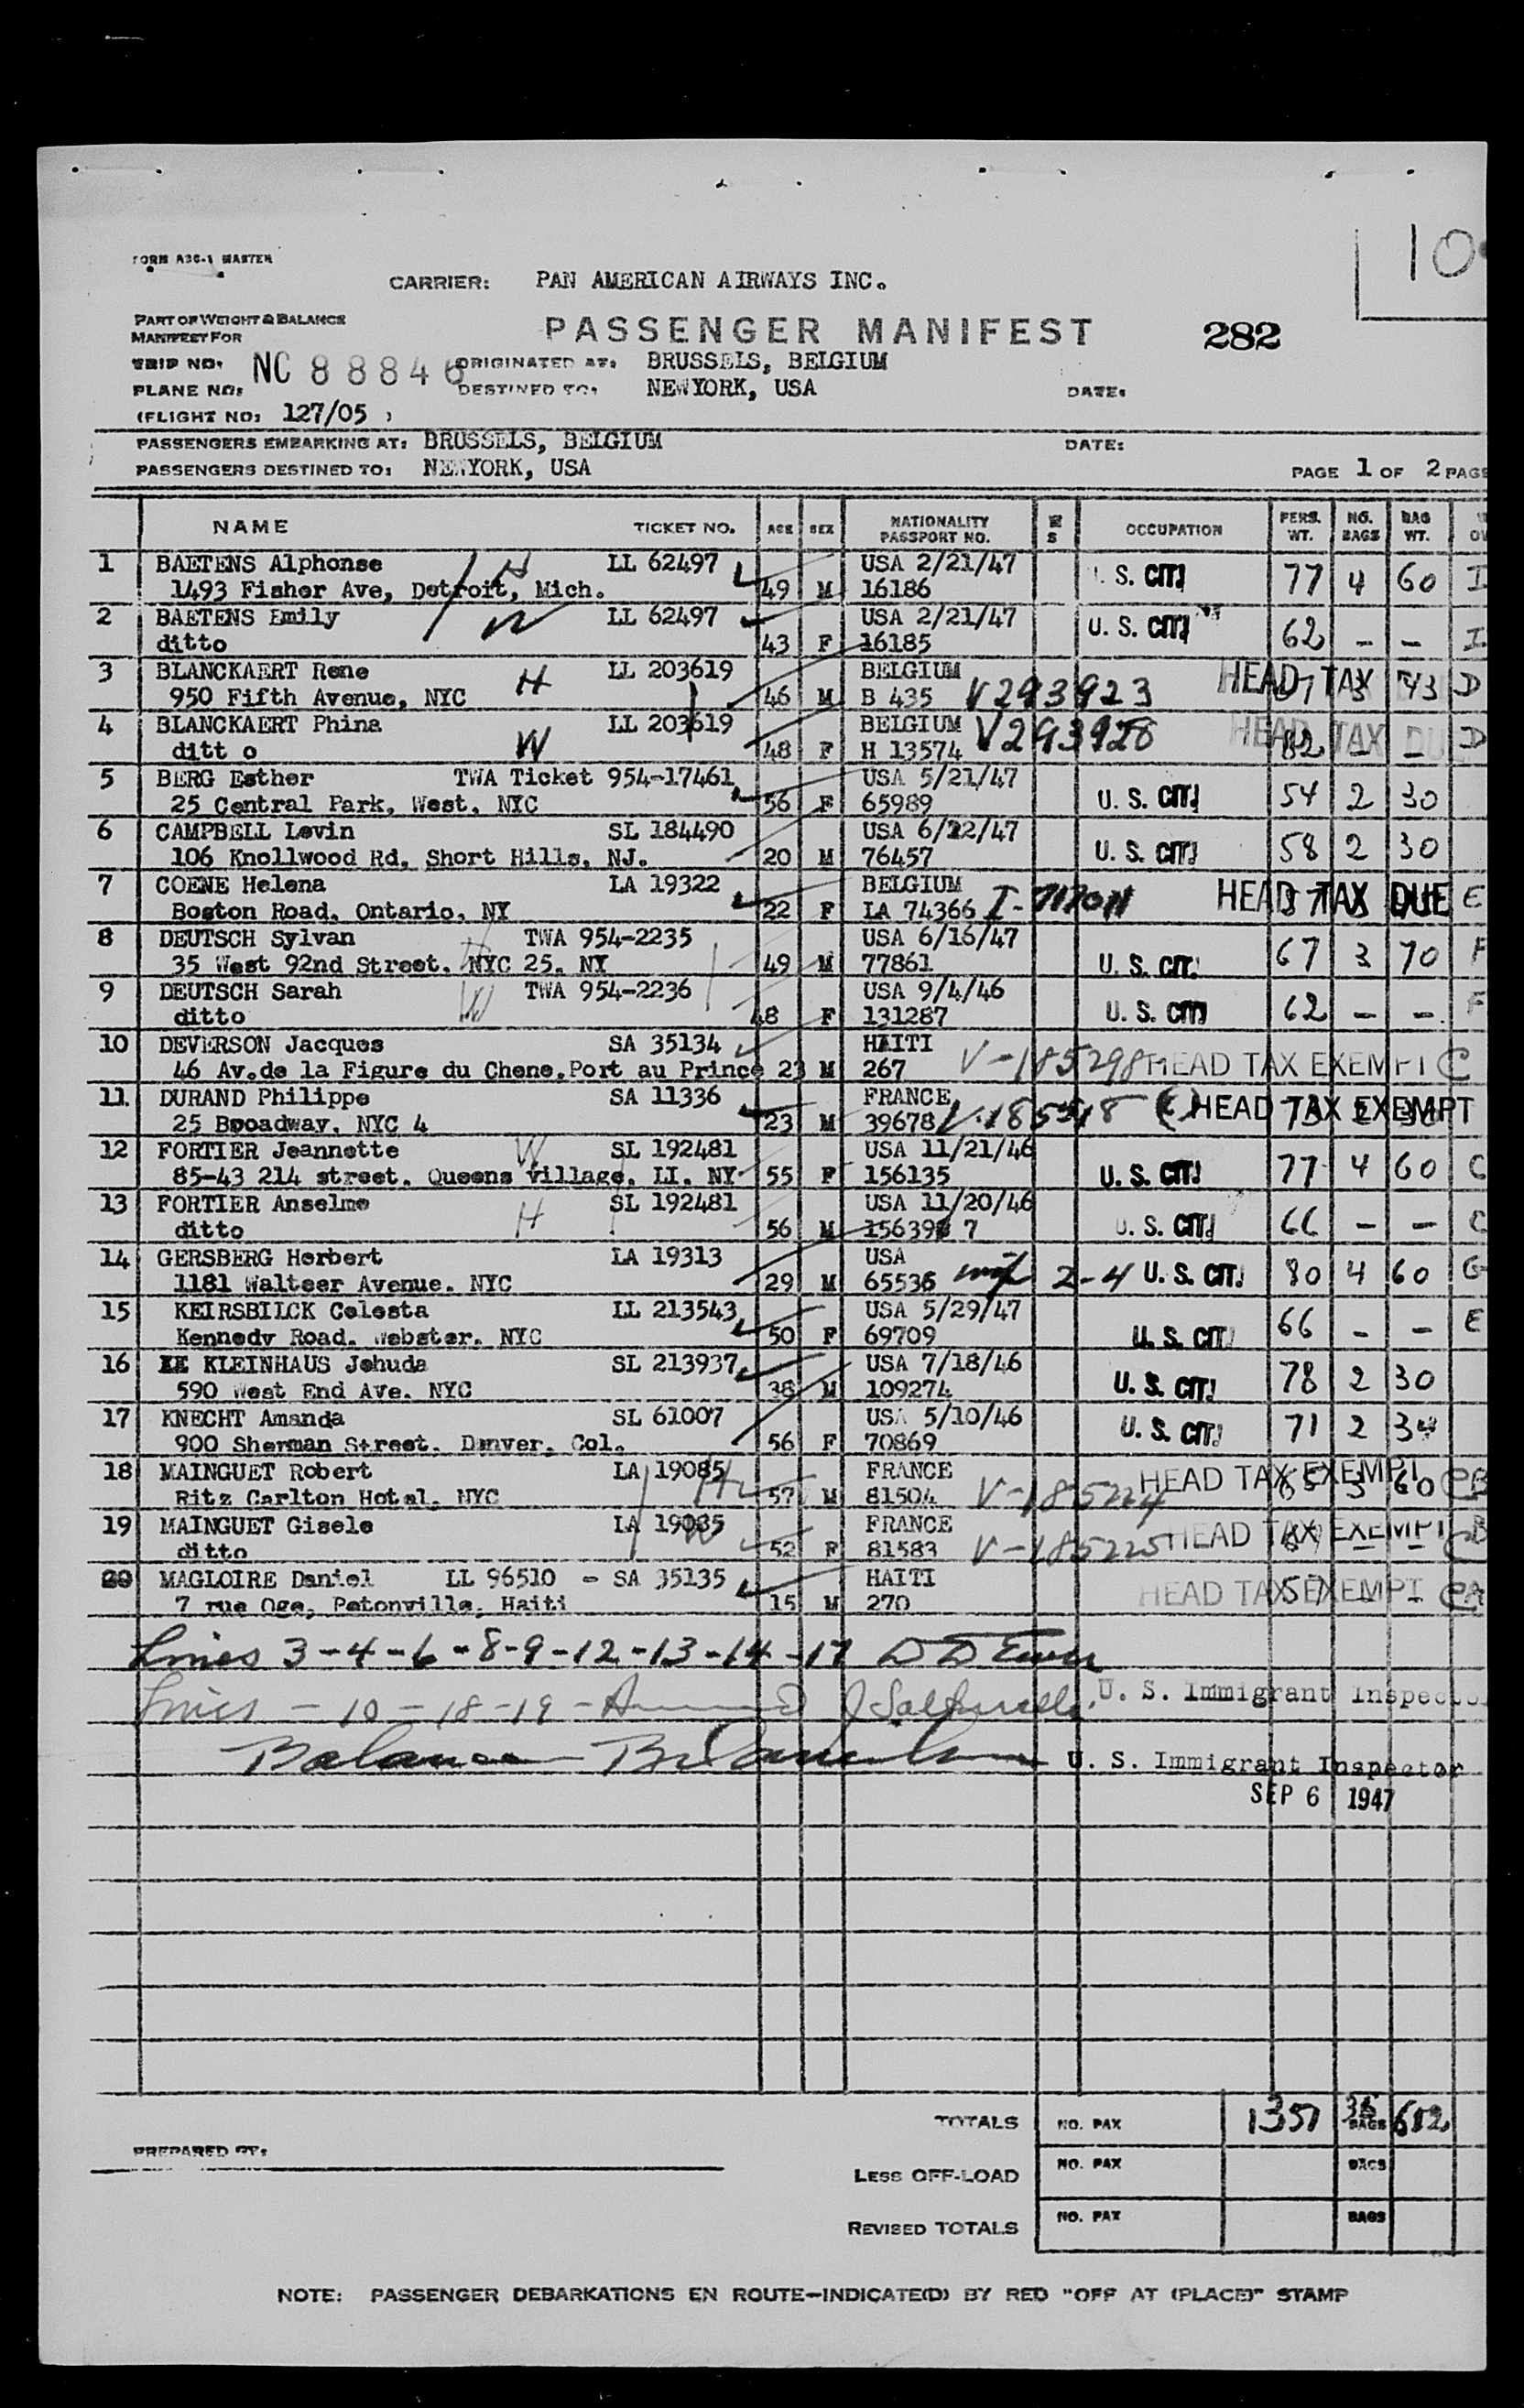 FORM A3G-1 MASTER
10
CARRIER: PAN AMERICAN AIRWAYS INC.
PART OF WEIGHT & BALANCE
MANIFEST FOR
PASSENGER MANIFEST 282
TRIP NO. NC 88846 ORIGINATED AT: BRUSSELS, BELGIUM
PLANE NO: DESTINED TO: NEWYORK, USA DATE:
(FLIGHT NO: 127/05 )
PASSENGERS EMBARKING AT: BRUSSELS, BELGIUM DATE:
PASSENGERS DESTINED TO: NEWYORK, USA PAGE 1 OF 2 PAGE
NAME TICKET NO. AGE SEX NATIONALITY PASSPORT NO. M S OCCUPATION PERS. WT. NO. BAGS BAG WT.
1 BAETENS Alphonse H LL 62497 USA 2/21/47 U. S. CIT. 77 4 60 I
1493 Fisher Ave, Detroit, Mich. 49 M 16186
2 BAETENS Emily W LL 62497 USA 2/21/47 U. S. CIT. 62 - - I
ditto 43 F 16185
3 BLANCKAERT Rene H LL 203619 BELGIUM HEAD TAX 3 43 D
950 Fifth Avenue, NYC 46 M B 435 V293923
4 BLANCKAERT Phina LL 203619 BELGIUM V293928 HEAD TAX DUE D
ditt o W 48 F H 13574 82 - -
5 BERG Esther TWA Ticket 954-17461 USA 5/21/47
25 Central Park, West, NYC 56 F 65989 U. S. CIT. 54 2 30
6 CAMPBELL Levin SL 184490 USA 6/22/47
106 Knollwood Rd, Short Hills, NJ. 20 M 76457 U. S. CIT. 58 2 30
7 COENE Helena LA 19322 BELGIUM HEAD TAX DUE E
Boston Road, Ontario, NY 22 F LA 74366
8 DEUTSCH Sylvan TWA 954-2235 USA 6/16/47 67 3 70 F
35 West 92nd Street, NYC 25, NY 49 M 77861 U. S. CIT.
9 DEUTSCH Sarah W TWA 954-2236 USA 9/4/46 U. S. CIT. 62 - - F
ditto 48 F 131287
10 DEVERSON Jacques SA 35134 HAITI
46 Av.de la Figure du Chene.Port au Prince 23 M 267 V-185298 HEAD TAX EXEMPT C
11. DURAND Philippe SA 11336 FRANCE
25 Broadway, NYC 4 23 M 39678 HEAD TAX EXEMPT
12 FORTIER Jeannette W SL 192481 USA 11/21/46
85-43 214 street. Queens Village, LI. NY 55 F 156135 U. S. CIT. 77 4 60 C
13 FORTIER Anselme H SL 192481 USA 11/20/46
ditto 56 M 15639 7 U. S. CIT. 66 - - C
14 GERSBERG Herbert LA 19313 USA
1181 Walteer Avenue. NYC 29 M 65536 2-4 U. S. CIT. 80 4 60 G
15 KEIRSBILCK Celesta LL 213543 USA 5/29/47 66 - - E
Kennedy Road. Webster. NYC 50 F 69709 U. S. CIT.
16 KLEINHAUS Jehuda SL 213937 USA 7/18/46
590 West End Ave. NYC 38 M 109274 U. S. CIT. 78 2 30
17 KNECHT Amanda SL 61007 USA 5/10/46
900 Sherman Street. Denver, Col. 56 F 70869 U. S. CIT. 71 2 34
18 MAINGUET Robert H LA 19085 FRANCE HEAD TAX EXEMPT
Ritz Carlton Hotel, NYC 57 M 81504 V-185224 3 60
19 MAINGUET Gisele LA 19085 FRANCE HEAD TAX EXEMPT
ditto 52 F 81583 V-185225
20 MAGLOIRE Daniel LL 96510 - SA 35135 HAITI HEAD TAX EXEMPT
7 rue Oge, Petonville, Haiti 15 M 270
Lines 3-4-6-8-9-12-13-14-17
Lines - 10 - 18 - 19 - U. S. Immigrant Inspector
Balance U. S. Immigrant Inspector
SEP 6 1947
TOTALS NO. PAX 1351 BAGS 612
PREPARED BY:
LESS OFF-LOAD NO. PAX BAGS
REVISED TOTALS NO. PAX BAGS
NOTE: PASSENGER DEBARKATIONS EN ROUTE—INDICATE(D) BY RED "OFF AT (PLACE)" STAMP